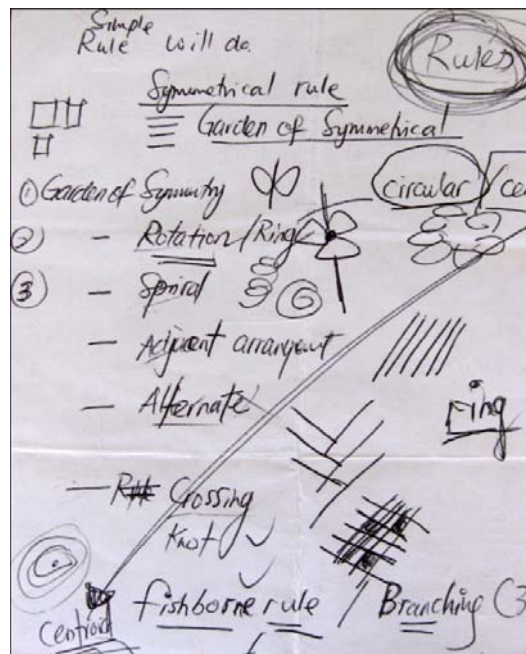 Simple
Rule will do.
Rules
Symmetrical rule
Garden of Symmetrical
① Garden of Symmetry
circular / ce
② — Rotation / Ring
③ — Spiral
— Adjacent arrangent
— Alternate
ring
— Crossing
Knot
fishborne rule
Branching (3
Centroid